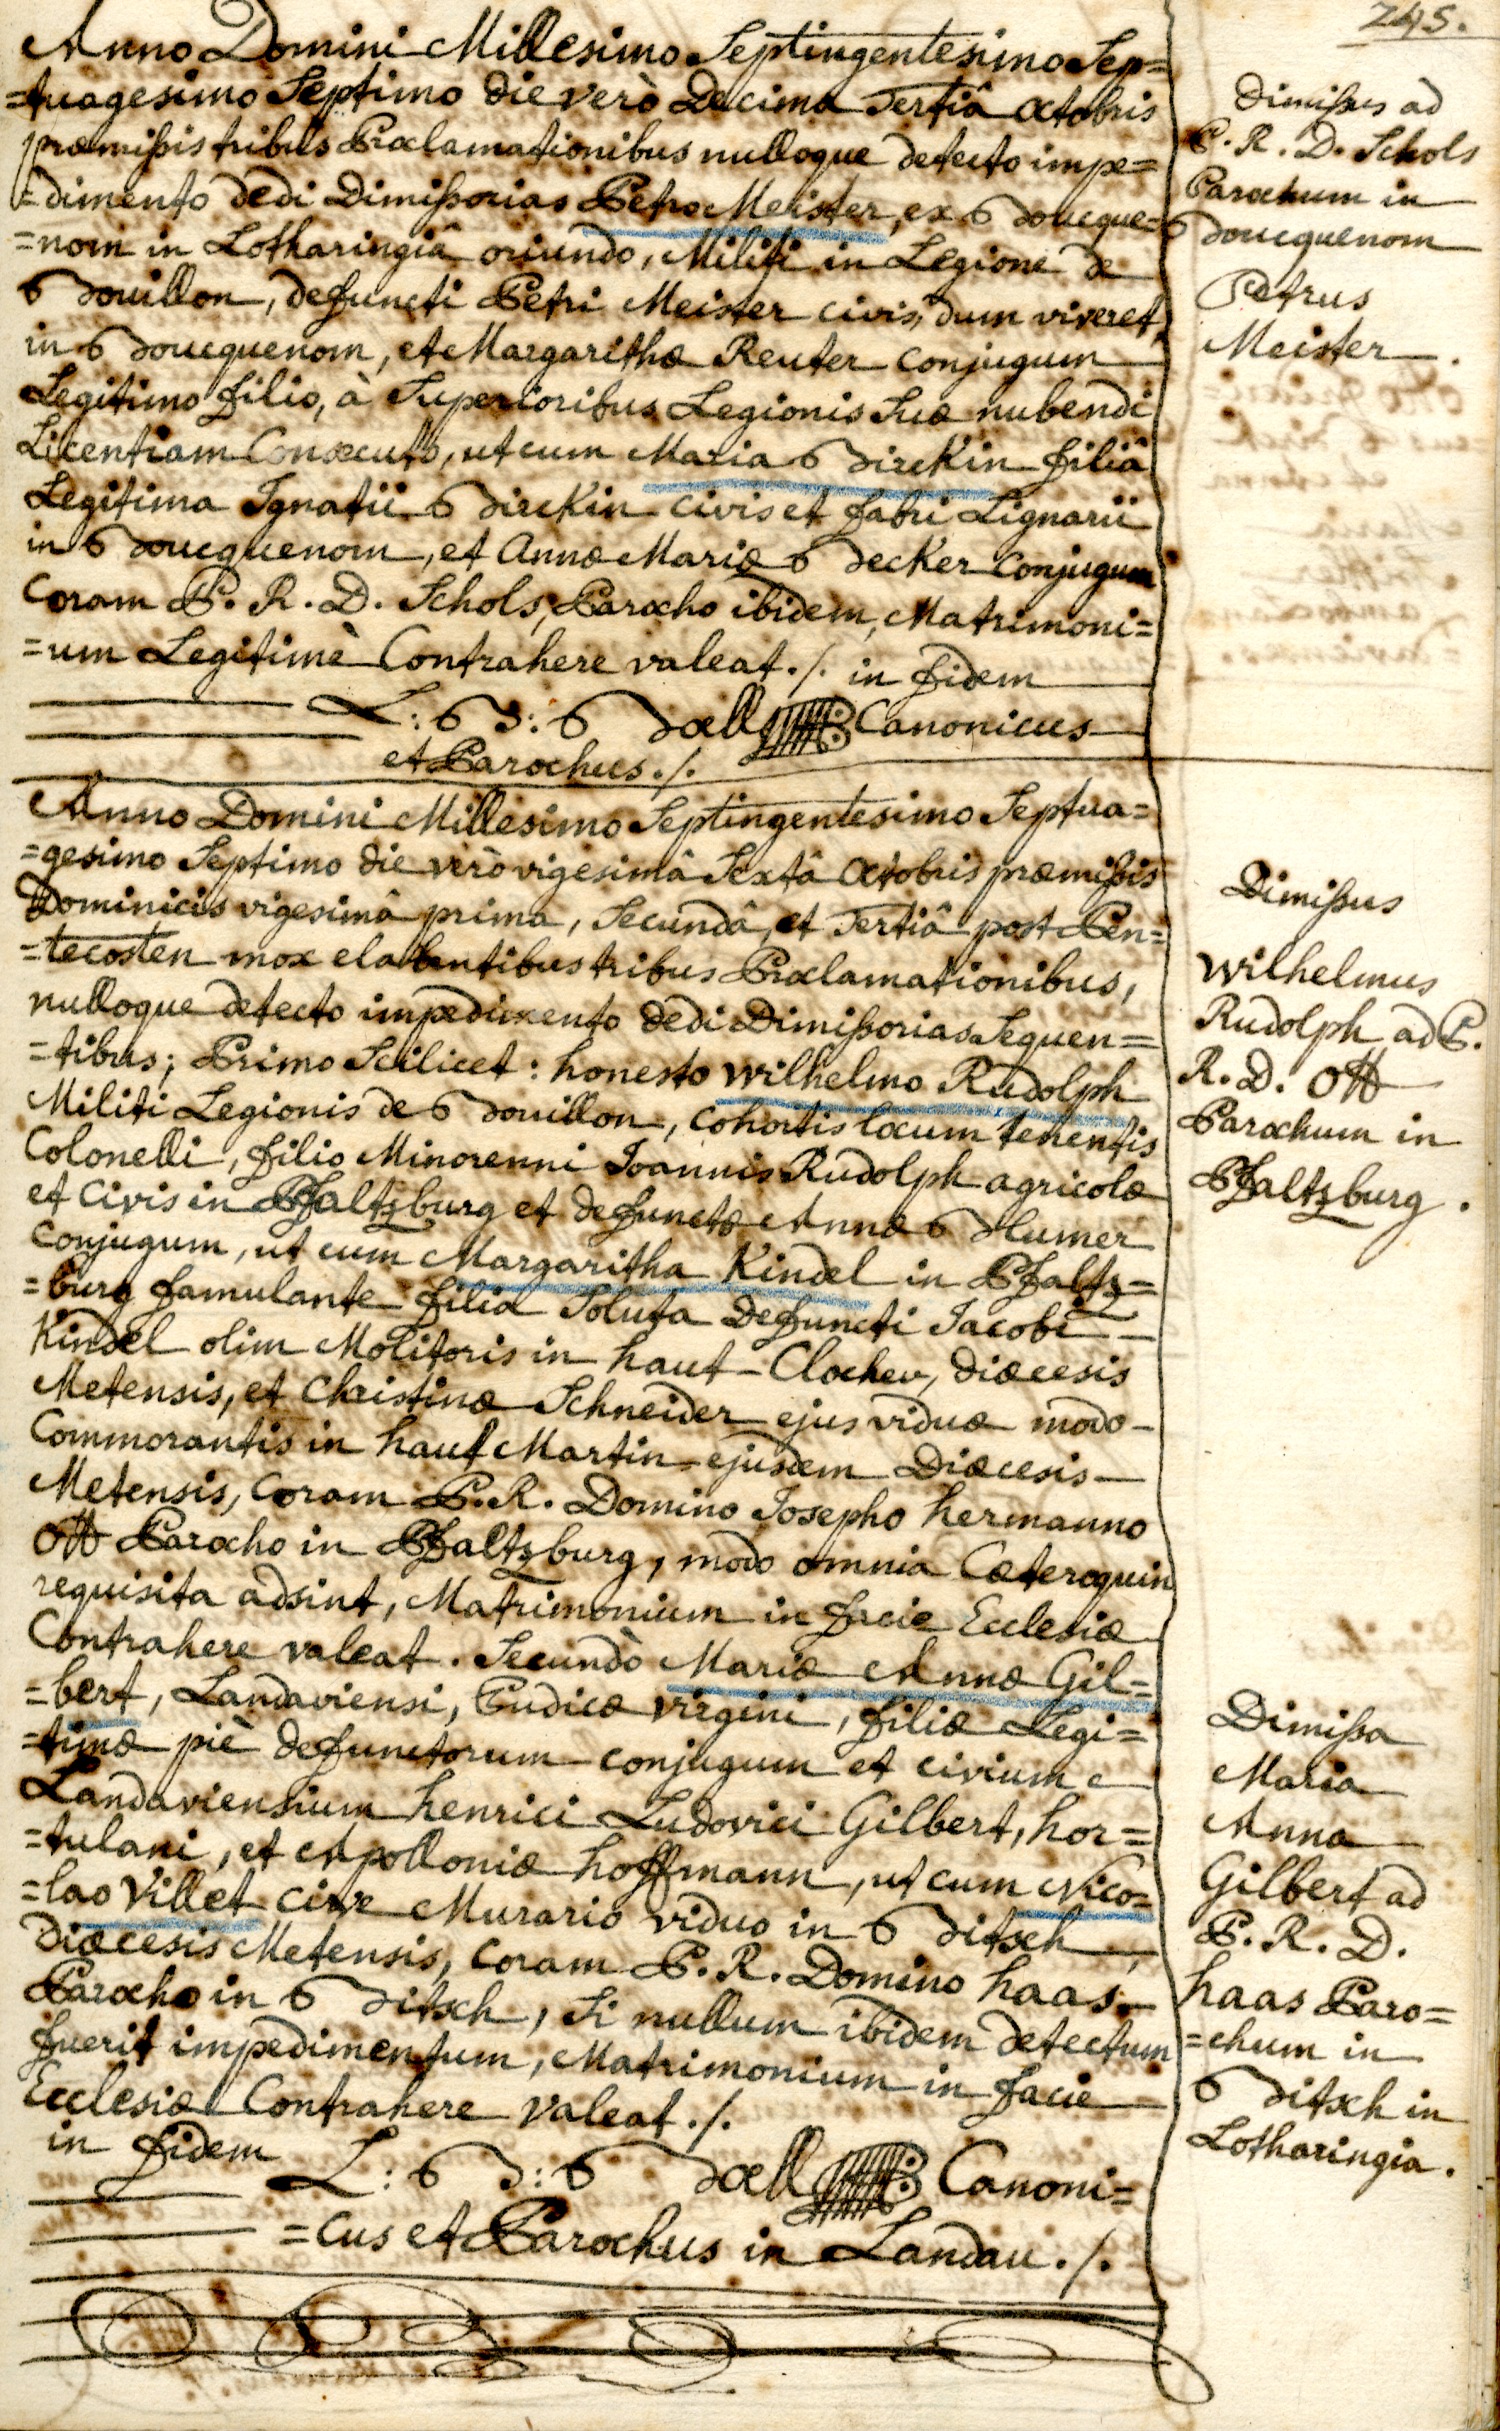 245.
Anno Domini Millesimo Septingentesimo Sep=
=tuagesimo Septimo die verò Decima Tertiâ octobris
præmißis tribus Proclamationibus nulloque detecto impe=
=dimento dedi Dimißorias Petro Meister, ex Boucque=
=nom in Lotharingiâ oriundo, Militi in Legione de
Bouillon, defuncti Petri Meister civis, dum viveret,
in Boucquenom, et Margarithæ Reuter conjugum
Legitimo filio, à Superioribus Legionis Suæ nubendi
Licentiam Consecuto, ut cum Maria Birckin filiâ
Legitima Ignatii Birckin civis et fabri Lignarii
in Boucquenom, et Annæ Mariæ Becker Conjugum
Coram P. R. D. Schols, Parocho ibidem, Matrimoni=
=um Legitimè Contrahere valeat ./. in fidem
L: B: Boell Canonicus
et Parochus ./.
Dimißus ad
P. R. D. Schols
Parochum in
Boucquenom
Petrus
Meister.
Anno Domini Millesimo Septingentesimo Septua=
=gesimo Septimo die verò vigesimâ Sextâ octobris præmißis
Dominicis vigesimâ prima, Secundâ, et Tertiâ post Pen=
=tecosten mox elabentibus tribus Proclamationibus,
nulloque detecto impedimento dedi Dimißorias Sequen=
=tibus; Primo Scilicet: honesto Wilhelmo Rudolph
Militi Legionis de Bouillon, cohortis locum tenentis
Colonelli, filio Minorenni Joannis Rudolph agricolæ
et Civis in Pfaltzburg et defunctæ Annæ Humer
Conjugum, ut cum Margaritha Kindel in Pfaltz=
=burg famulante filia Soluta Defuncti Jacobi
Kindel olim Molitoris in haut-Clocher, Diœcesis
Metensis, et Christinæ Schneider ejus viduæ modo
Commorantis in haut Martin ejusdem Diœcesis
Metensis, Coram P. R. Domino Josepho hermanno
Ott Parocho in Pfaltzburg, modo omnia Cæteroquin
requisita adsint, Matrimonium in facie Ecclesiæ
Contrahere valeat. Secundò Mariæ Annæ Gil=
=bert, Landaviensi, Pudicæ virgini, filiæ Legi=
=timæ piè defunctorum conjugum et civium
Landaviensium henrici Ludovici Gilbert, hor=
=tulani, et Apolloniæ hoffmann, ut cum Nico=
=lao Villet cive Murario viduo in Bitsch,
Diœcesis Metensis, Coram P. R. Domino haas
Parocho in Bitsch, Si nullum ibidem detectum
fuerit impedimentum, Matrimonium in facie
Ecclesiæ Contrahere valeat ./.
in fidem
L: B: Boell Canoni=
=cus et Parochus in Landau ./.
Dimißus
Wilhelmus
Rudolph ad P.
R. D. Ott
Parochum in
Pfaltzburg.
Dimißa
Maria
Anna
Gilbert ad
P. R. D.
haas Paro=
=chum in
Bitsch in
Lotharingia.